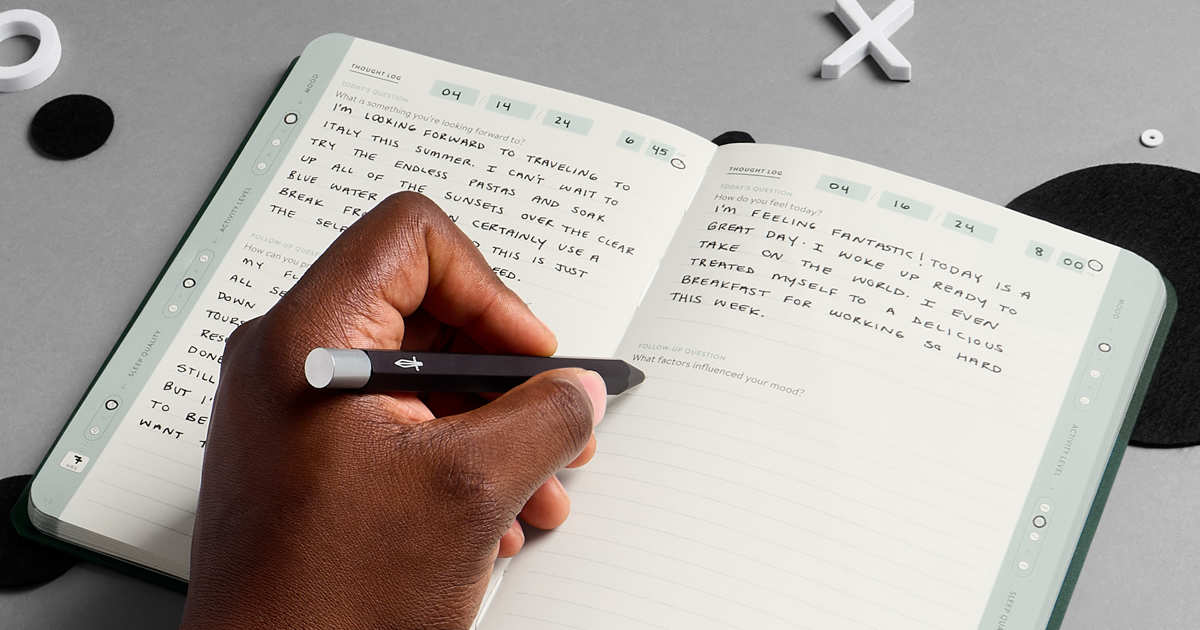 THOUGHT LOG
04 / 14 / 24
6 45
TODAY'S QUESTION
What is something you're looking forward to?
I'M LOOKING FORWARD TO TRAVELING TO
ITALY THIS SUMMER. I CAN'T WAIT TO
TRY THE ENDLESS PASTAS AND SOAK
UP ALL OF THE SUNSETS OVER THE CLEAR
BLUE WATER CERTAINLY USE A
BREAK THIS IS JUST
THE
FOLLOW-UP QUESTION
How can you
MY
ALL
DOWN
DONE
STILL
BUT
TO BE
WANT
MOOD
ACTIVITY LEVEL
SLEEP QUALITY
7
HRS
THOUGHT LOG
04 / 16 / 24
8 00
TODAY'S QUESTION
How do you feel today?
I'M FEELING FANTASTIC! TODAY IS A
GREAT DAY. I WOKE UP READY TO
TAKE ON THE WORLD. I EVEN
TREATED MYSELF TO A DELICIOUS
BREAKFAST FOR WORKING SO HARD
THIS WEEK.
FOLLOW-UP QUESTION
What factors influenced your mood?
MOOD
ACTIVITY LEVEL
SLEEP